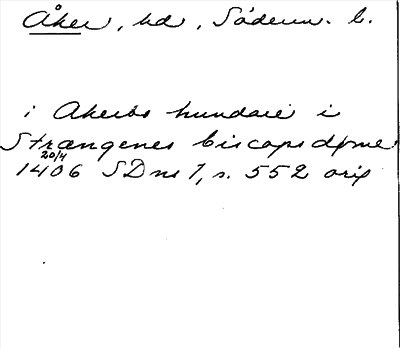 Åker, hd, Söderm. l.
i Akerbo hundare i
Strængenes biscopsdøme
20/4
1406 SDns 1, s. 552 orig